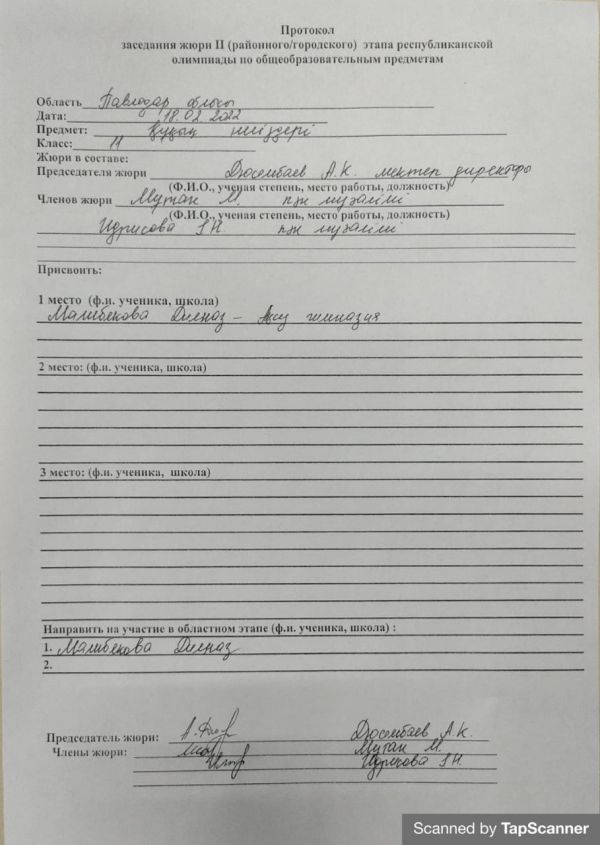 Протокол
заседания жюри II (районного/городского) этапа республиканской
олимпиады по общеобразовательным предметам
Область Павлодар облысы
Дата: 18.02.2022
Предмет: Құқық негіздері
Класс: 11
Жюри в составе:
Председателя жюри Дюсембаев А.К. мектеп директоры
(Ф.И.О., ученая степень, место работы, должность)
Членов жюри Мутан М. пән мұғалімі
(Ф.И.О., ученая степень, место работы, должность)
Идрисова пән мұғалімі
Присвоить:
1 место (ф.и. ученика, школа)
Малибекова Дилназ - гимназия
2 место: (ф.и. ученика, школа)
3 место: (ф.и. ученика, школа)
Направить на участие в областном этапе (ф.и. ученика, школа) :
1. Малибекова Дилназ
2.
Председатель жюри: Дюсембаев А.К.
Члены жюри: Мутан М.
Идрисова
Scanned by TapScanner